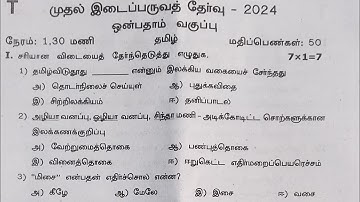 T
முதல் இடைப்பருவத் தேர்வு - 2024
ஒன்பதாம் வகுப்பு
நேரம்: 1.30 மணி தமிழ் மதிப்பெண்கள்: 50
I. சரியான விடையைத் தேர்ந்தெடுத்து எழுதுக. 7×1=7
1) தமிழ்விடுதூது ______ என்னும் இலக்கிய வகையைச் சேர்ந்தது
அ) தொடர்நிலைச் செய்யுள் ஆ) புதுக்கவிதை
இ) சிற்றிலக்கியம் ஈ) தனிப்பாடல்
2) அழியா வனப்பு, ஒழியா வனப்பு, சிந்தா மணி - அடிக்கோடிட்ட சொற்களுக்கான
இலக்கணக்குறிப்பு
அ) வேற்றுமைத்தொகை ஆ) பண்புத்தொகை
இ) வினைத்தொகை ஈ) ஈறுகெட்ட எதிர்மறைப்பெயரெச்சம்
3) "மிசை" என்பதன் எதிர்ச்சொல் என்ன?
அ) கீழே ஆ) மேலே இ) இசை ஈ) வசை